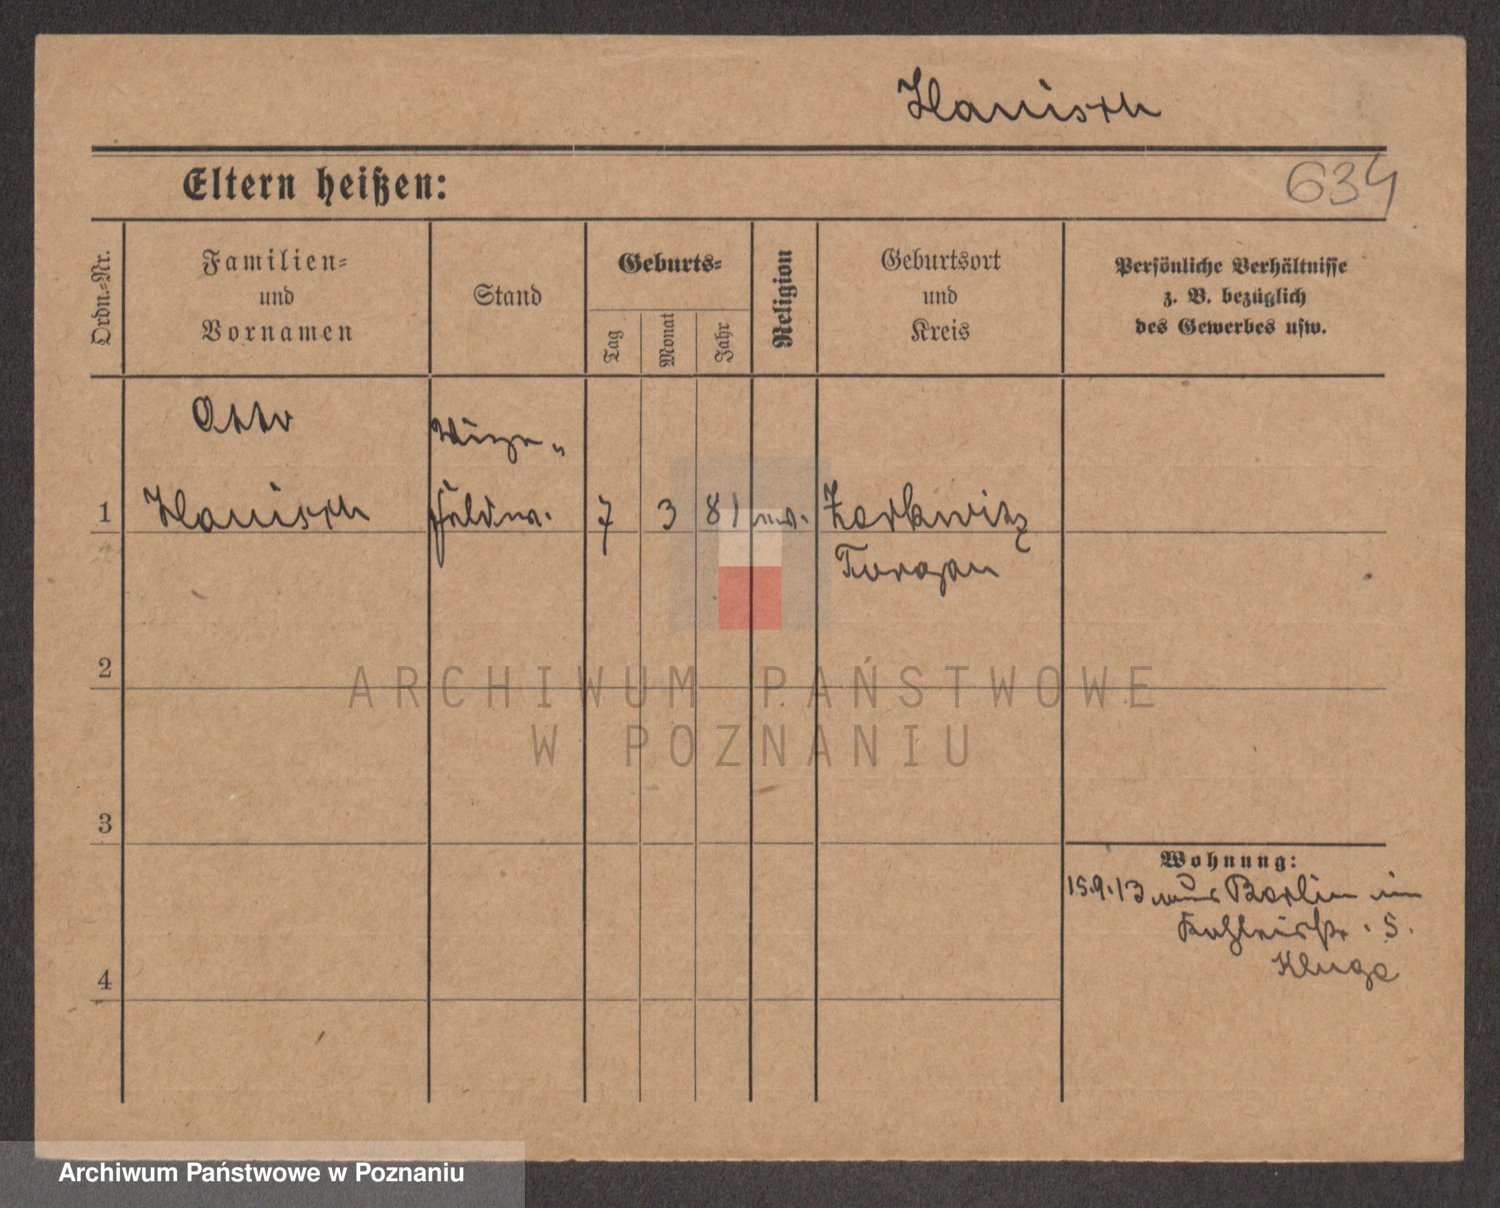 Hanisch
Eltern heißen:
634
Ordn.-Nr.
Familien-
und
Vornamen
Stand
Geburts-
Tag
Monat
Jahr
Religion
Geburtsort
und
Kreis
Persönliche Verhältnisse
z. B. bezüglich
des Gewerbes usw.
Otto
Vize-
1 Hanisch feldw. 7 3 81 Zackwitz
Torgau
2
3
4
Wohnung:
15.9.13 aus Berlin in
5.
Kluge
ARCHIWUM PAŃSTWOWE
W POZNANIU
Archiwum Państwowe w Poznaniu